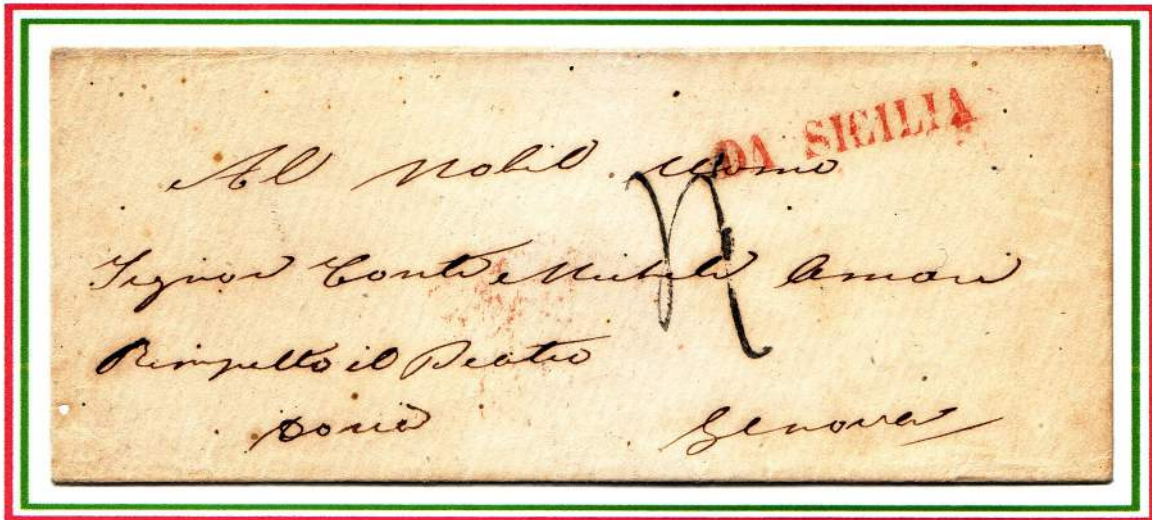 DA SICILIA
Al Nobil Uomo
Signor Conte Michele Amari
Rimpetto il Teatro
Doria Genova